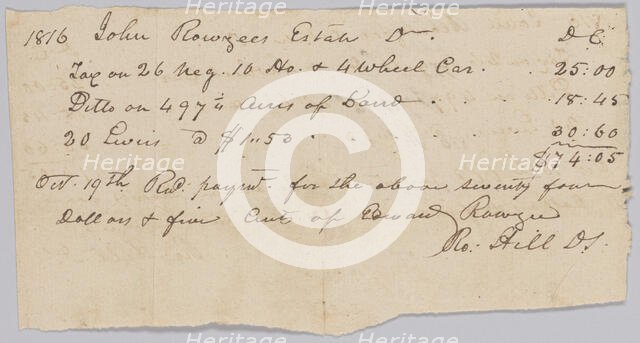 1816 John Rowzees Estate Dr. D C
Tax on 26 Neg. 10 Ho. & 4 Wheel Car. . 25:00
Ditto on 497 Acres of Land . . . 18:45
20 Levies @ $1.53 . . . . 30:60
$74:05
Oct. 19th Recd. payent. for the above seventy four
Dollars & five Cent of Edward Rowzee
Ro: Hill DS.
Heritage Heritage Heritage